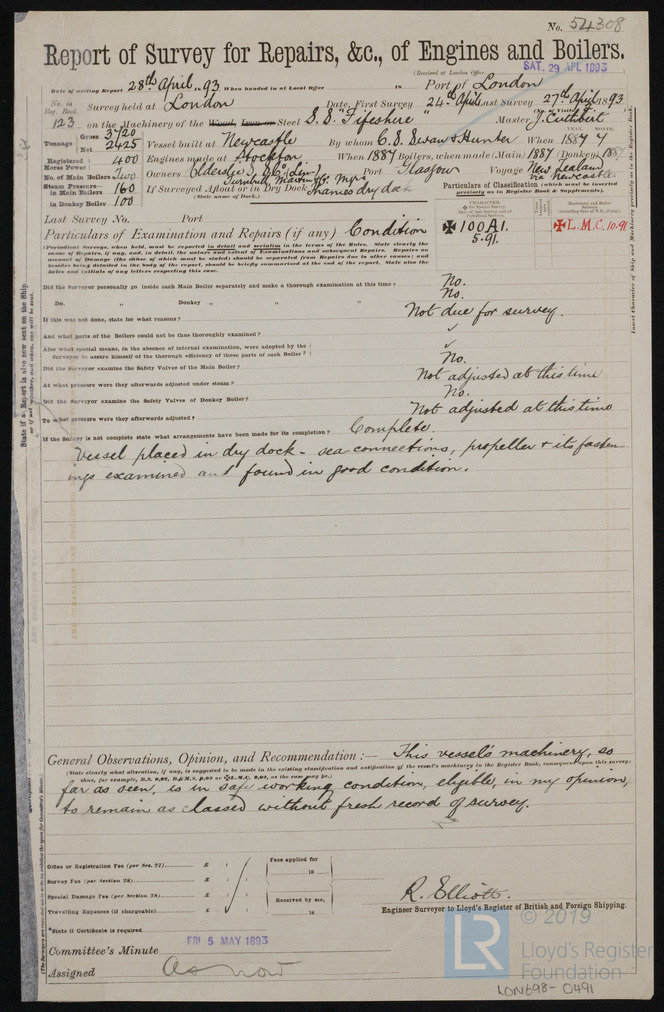 No. 54308
Report of Survey for Repairs, &c., of Engines and Boilers.
(Received at London Office SAT. 29 APL 1893
Date of writing Report 28th April 1893 When handed in at Local Office 18 Port of London
No. in Reg. Book. Survey held at London Date, First Survey 24th April Last Survey 27th April 1893
(No. of Visits
123 on the Machinery of the Wood, Iron or Steel S.S. "Fifeshire" Master J. Cuthbert
Tonnage Gross 3720 Net 2425 Vessel built at Newcastle By whom C.S. Swan & Hunter When 1887 7
YEAR. MONTH.
Registered Horse Power 400 Engines made at Stockton When 1887 Boilers, when made (Main) 1887 (Donkey) 1887
No. of Main Boilers Two Owners Elderslie S.S. Co. (Lim) Port Glasgow Voyage New Zealand via Newcastle
Turnbull, Martin & Co. Mgrs
Steam Pressure in Main Boilers 160 If Surveyed Afloat or in Dry Dock Thames dry dock
in Donkey Boiler 100 (State name of Dock.)
Particulars of Classification (which must be inserted precisely as in Register Book & Supplements).
Last Survey No. Port
✠ 100A1. 5.91. ✠ L.M.C. 10.91
Particulars of Examination and Repairs (if any) Condition
(Periodical Surveys, when held, must be reported in detail and seriatim in the terms of the Rules. State clearly the
cause of Repairs, if any, and, in detail, the nature and extent of Examinations and subsequent Repairs. Repairs on
account of Damage (the cause of which must be stated) should be separated from Repairs due to other causes; and
besides being detailed in the body of the report, should be briefly summarised at the end of the report. State also the
dates and initials of any letters respecting this case.
Did the Surveyor personally go inside each Main Boiler separately and make a thorough examination at this time? No.
Do. „ Donkey „ „ „ No.
If this was not done, state for what reasons? Not due for survey.
And what parts of the Boilers could not be thus thoroughly examined? ✓
Also what special means, in the absence of internal examination, were adopted by the
Surveyor to assure himself of the thorough efficiency of those parts of each Boiler? ✓
Did the Surveyor examine the Safety Valves of the Main Boiler? No.
At what pressure were they afterwards adjusted under steam? Not adjusted at this time
Did the Surveyor examine the Safety Valves of Donkey Boiler? No.
To what pressure were they afterwards adjusted? Not adjusted at this time
If the Survey is not complete state what arrangements have been made for its completion? Complete.
Vessel placed in dry dock - sea connections, propeller & its fasten
ings examined and found in good condition.
General Observations, Opinion, and Recommendation:— This vessel's machinery, so
(State clearly what alteration, if any, is suggested to be made in the existing classification and notification of the vessel's machinery in the Register Book, consequent upon this survey:
thus, for example, B.S. 9,92, B.&M.S. 9,92 or ✠L.M.C. 9,92, as the case may be.)
far as seen, is in safe working condition, eligible, in my opinion,
to remain as classed without fresh record of survey.
Office or Registration Fee (per Sec. 27) £ : :
Fees applied for 18
Survey Fee (per Section 28) £ : :
Special Damage Fee (per Section 28) £ : :
Received by me, 18
Travelling Expenses (if chargeable) £ : :
R. Elliott.
Engineer Surveyor to Lloyd's Register of British and Foreign Shipping.
*State if Certificate is required
Committee's Minute FRI 5 MAY 1893
Assigned As now
© 2019
LR Lloyd's Register
Foundation
LON698-0491